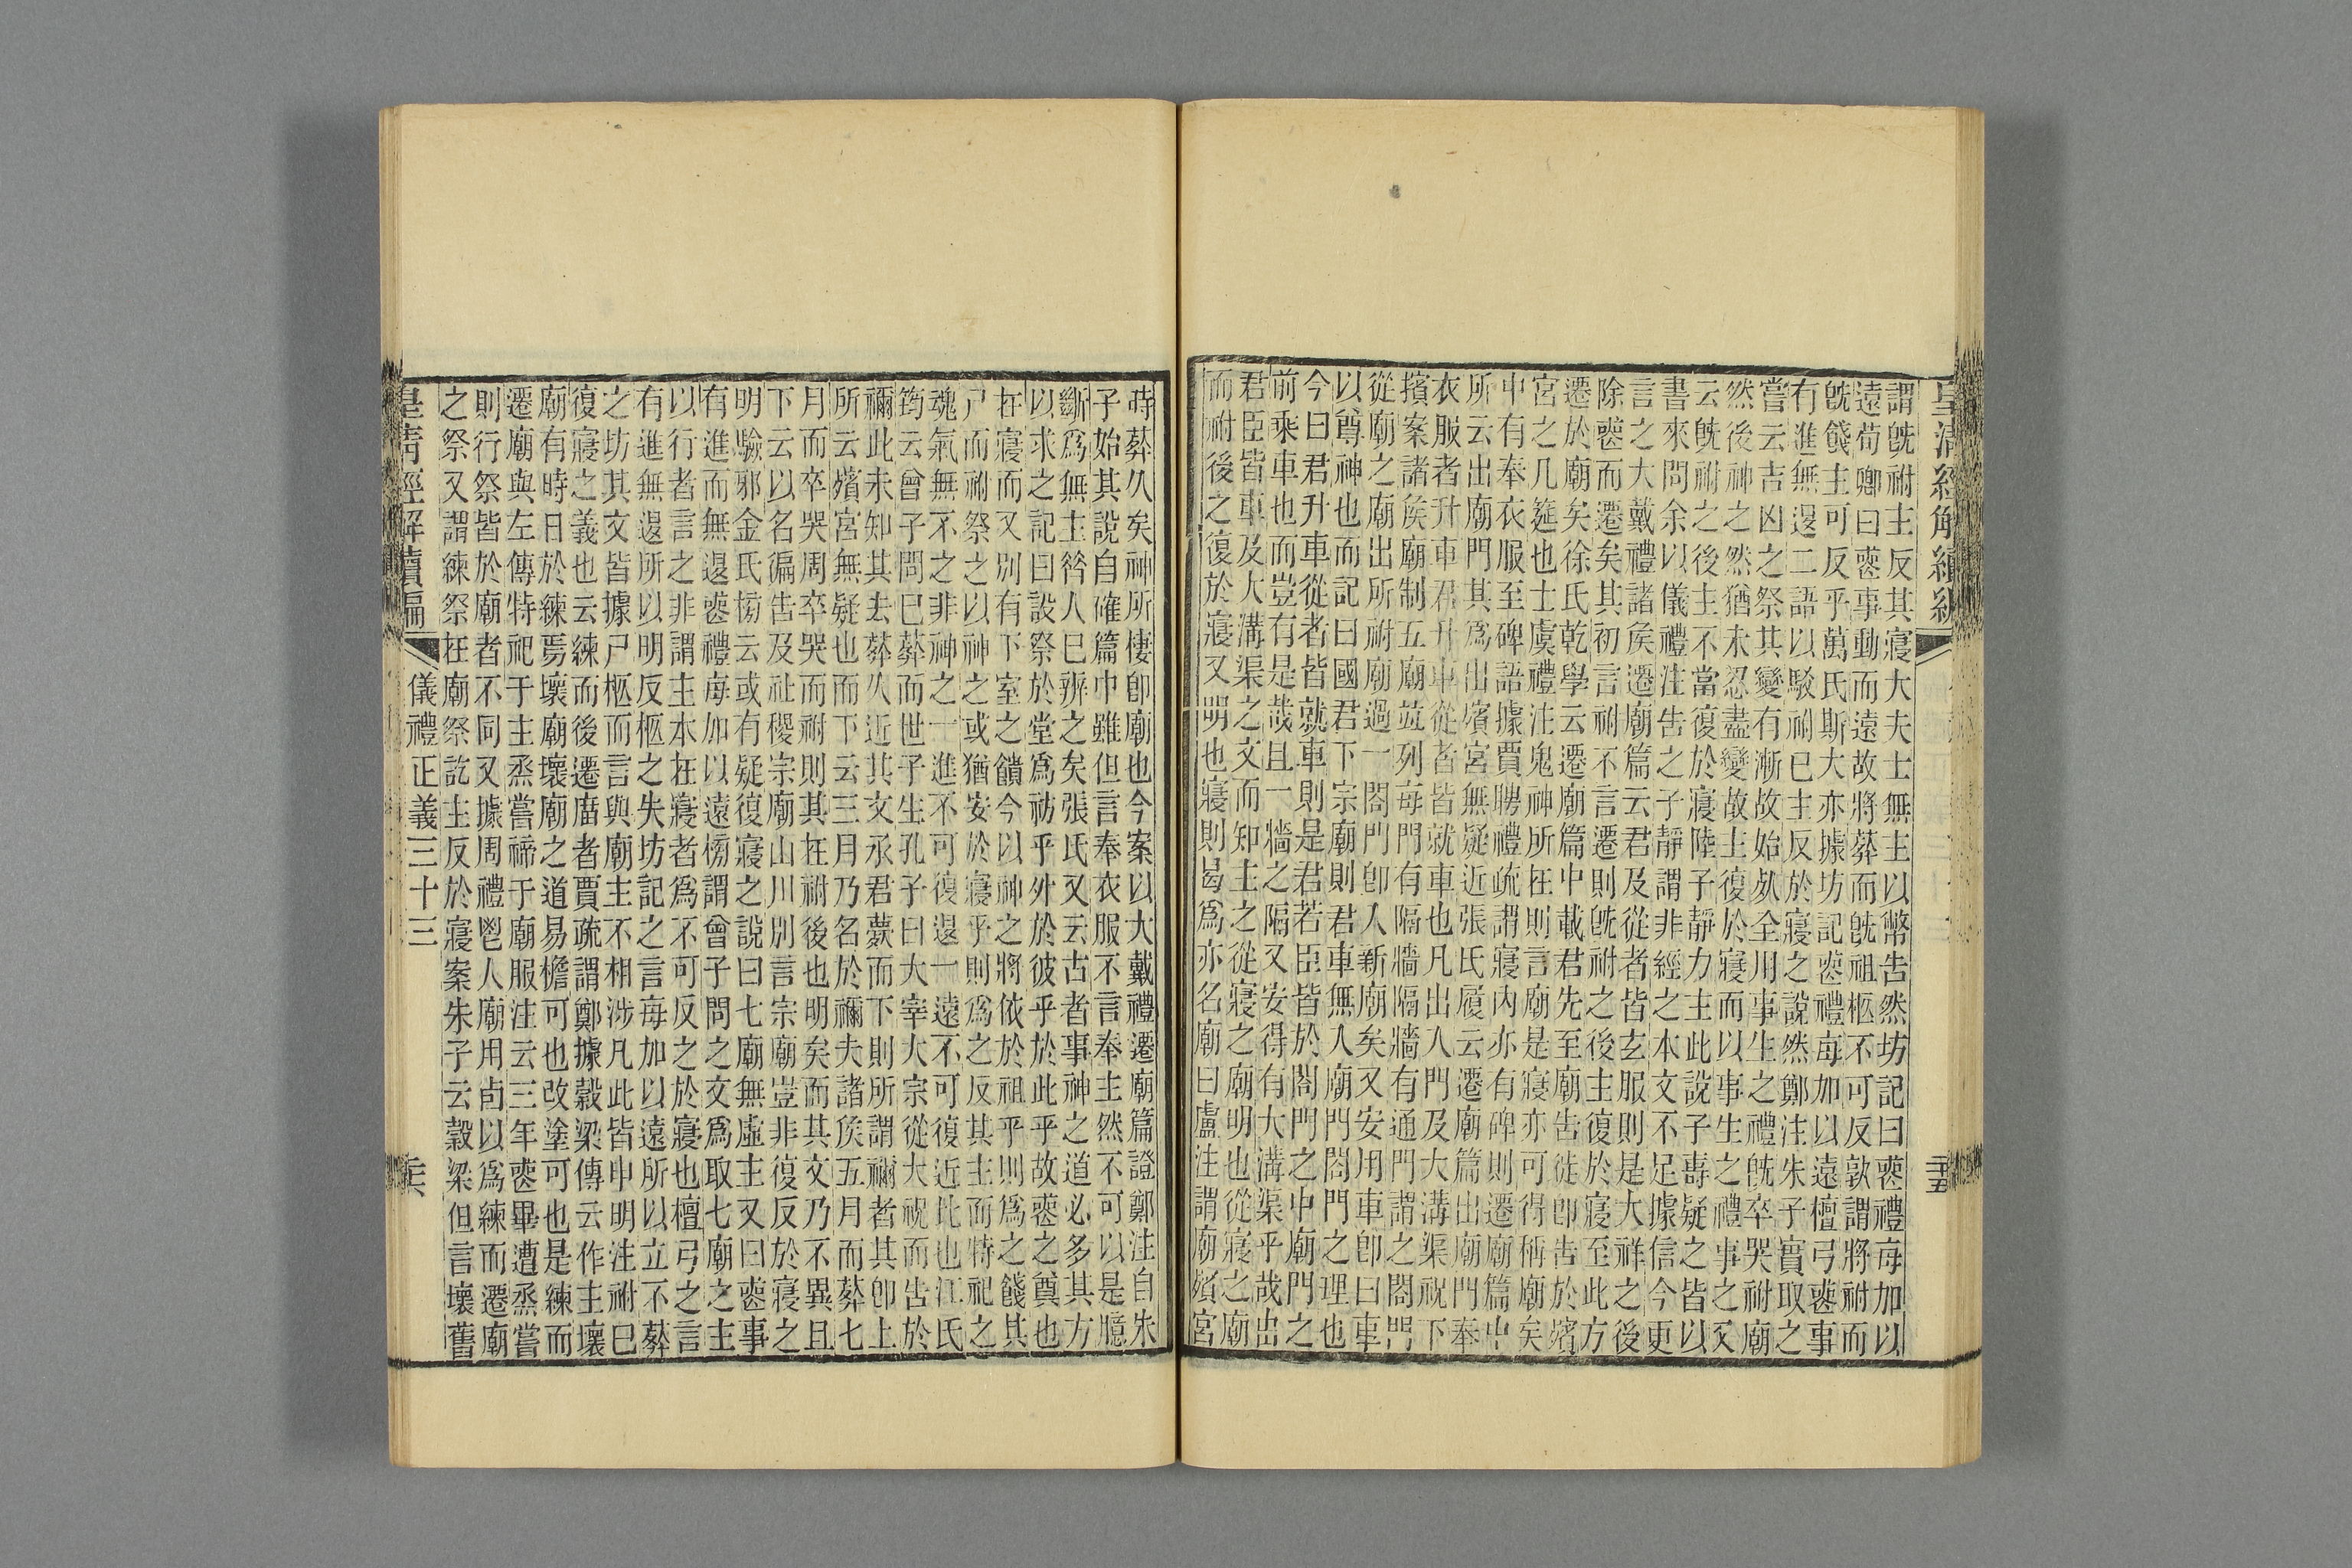 皇清經解續編
謂旣祔主反其寢大夫士無主以幣告然坊記曰喪禮每加以
遠荀卿曰喪事動而遠故將葬而旣祖柩不可反敦謂將祔而
旣餞主可反乎萬氏斯大亦據坊記喪禮每加以遠檀弓喪事
有進無退二語以駁祔已主反於寢之說然鄭注朱子實取之
嘗云吉凶之祭其變有漸故始死全用事生之禮旣卒哭祔廟
然後神之然猶未忍盡變故主復於寢而以事生之禮事之又
云旣祔之後主不當復於寢陸子靜力主此說子壽疑之皆以
書來問余以儀禮注告之子靜謂非經之本文不足據信今更
言之大戴禮諸矦遷廟篇云君及從者皆玄服則是大祥之後
除喪而遷矣其初言祔不言遷則旣祔之後主復於寢至此方
遷於廟矣徐氏乾學云遷廟篇中載君先至廟告徙卽告於殯
宮之几筵也士虞禮注鬼神所在則言廟是寢亦可得稱廟矣
中有奉衣服至碑語據賈聘禮疏謂寢內亦有碑則遷廟篇中
所云出廟門其爲出殯宮無疑近張氏履云遷廟篇出廟門奉
衣服者升車君升車從者皆就車也凡出入門及大溝渠祝下
擯案諸矦廟制五廟竝列每門有隔牆隔牆有通門謂之閤門
從廟之廟出所祔廟過一閤門卽入新廟矣又安用車卽曰車
以尊神也而記曰國君下宗廟則君車無入廟門閤門之理也
今曰君升車從者皆就車則是君若臣皆於閤門之中廟門之
前乘車也而豈有是哉且一牆之隔又安得有大溝渠乎哉出
君臣皆車及大溝渠之文而知主之從寢之廟明也從寢之廟
而祔後之復於寢又明也寢則曷爲亦名廟曰盧注謂廟殯宮
時葬久矣神所棲卽廟也今案以大戴禮遷廟篇證鄭注自朱
子始其說自確篇中雖但言奉衣服不言奉主然不可以是臆
斷爲無主咎人已辨之矣張氏又云古者事神之道必多其方
以求之記曰設祭於堂爲祊乎外於彼乎於此乎故喪之奠也
在寢而又別有下室之饋今以神之將依於祖乎則爲之餞其
尸而祔祭之以神之或猶安於寢乎則爲之反其主而特祀之
魂氣無不之非神之一進不可復退一遠不可復近比也江氏
筠云曾子問已葬而世子生孔子曰大宰大宗從大祝而告於
禰此未知其去葬久近其文承君薨而下則所謂禰者其卽上
所云殯宮無疑也而下云三月乃名於禰夫諸矦五月而葬七
月而卒哭周卒哭而祔則其在祔後也明矣而其文乃不異且
下云以名徧告及社稷宗廟山川別言宗廟豈非復反於寢之
明驗邪金氏榜云或有疑復寢之說曰七廟無虛主又曰喪事
有進而無退喪禮每加以遠榜謂曾子問之文爲取七廟之主
以行者言之非謂主本在寢者爲不可反之於寢也檀弓之言
有進無退所以明反柩之失坊記之言每加以遠所以立不葬
之坊其文皆據尸柩而言與廟主不相涉凡此皆申明注祔已
復寢之義也云練而後遷廟者賈疏謂鄭據穀梁傳云作主壞
廟有時日於練焉壞廟壞廟之道易檐可也改塗可也是練而
遷廟與左傳特祀于主烝嘗禘于廟服注云三年喪畢遭烝嘗
則行祭皆於廟者不同又據周禮鬯人廟用卣以爲練而遷廟
之祭又謂練祭在廟祭訖主反於寢案朱子云穀梁但言壞舊
皇清經解續編
儀禮正義三十三